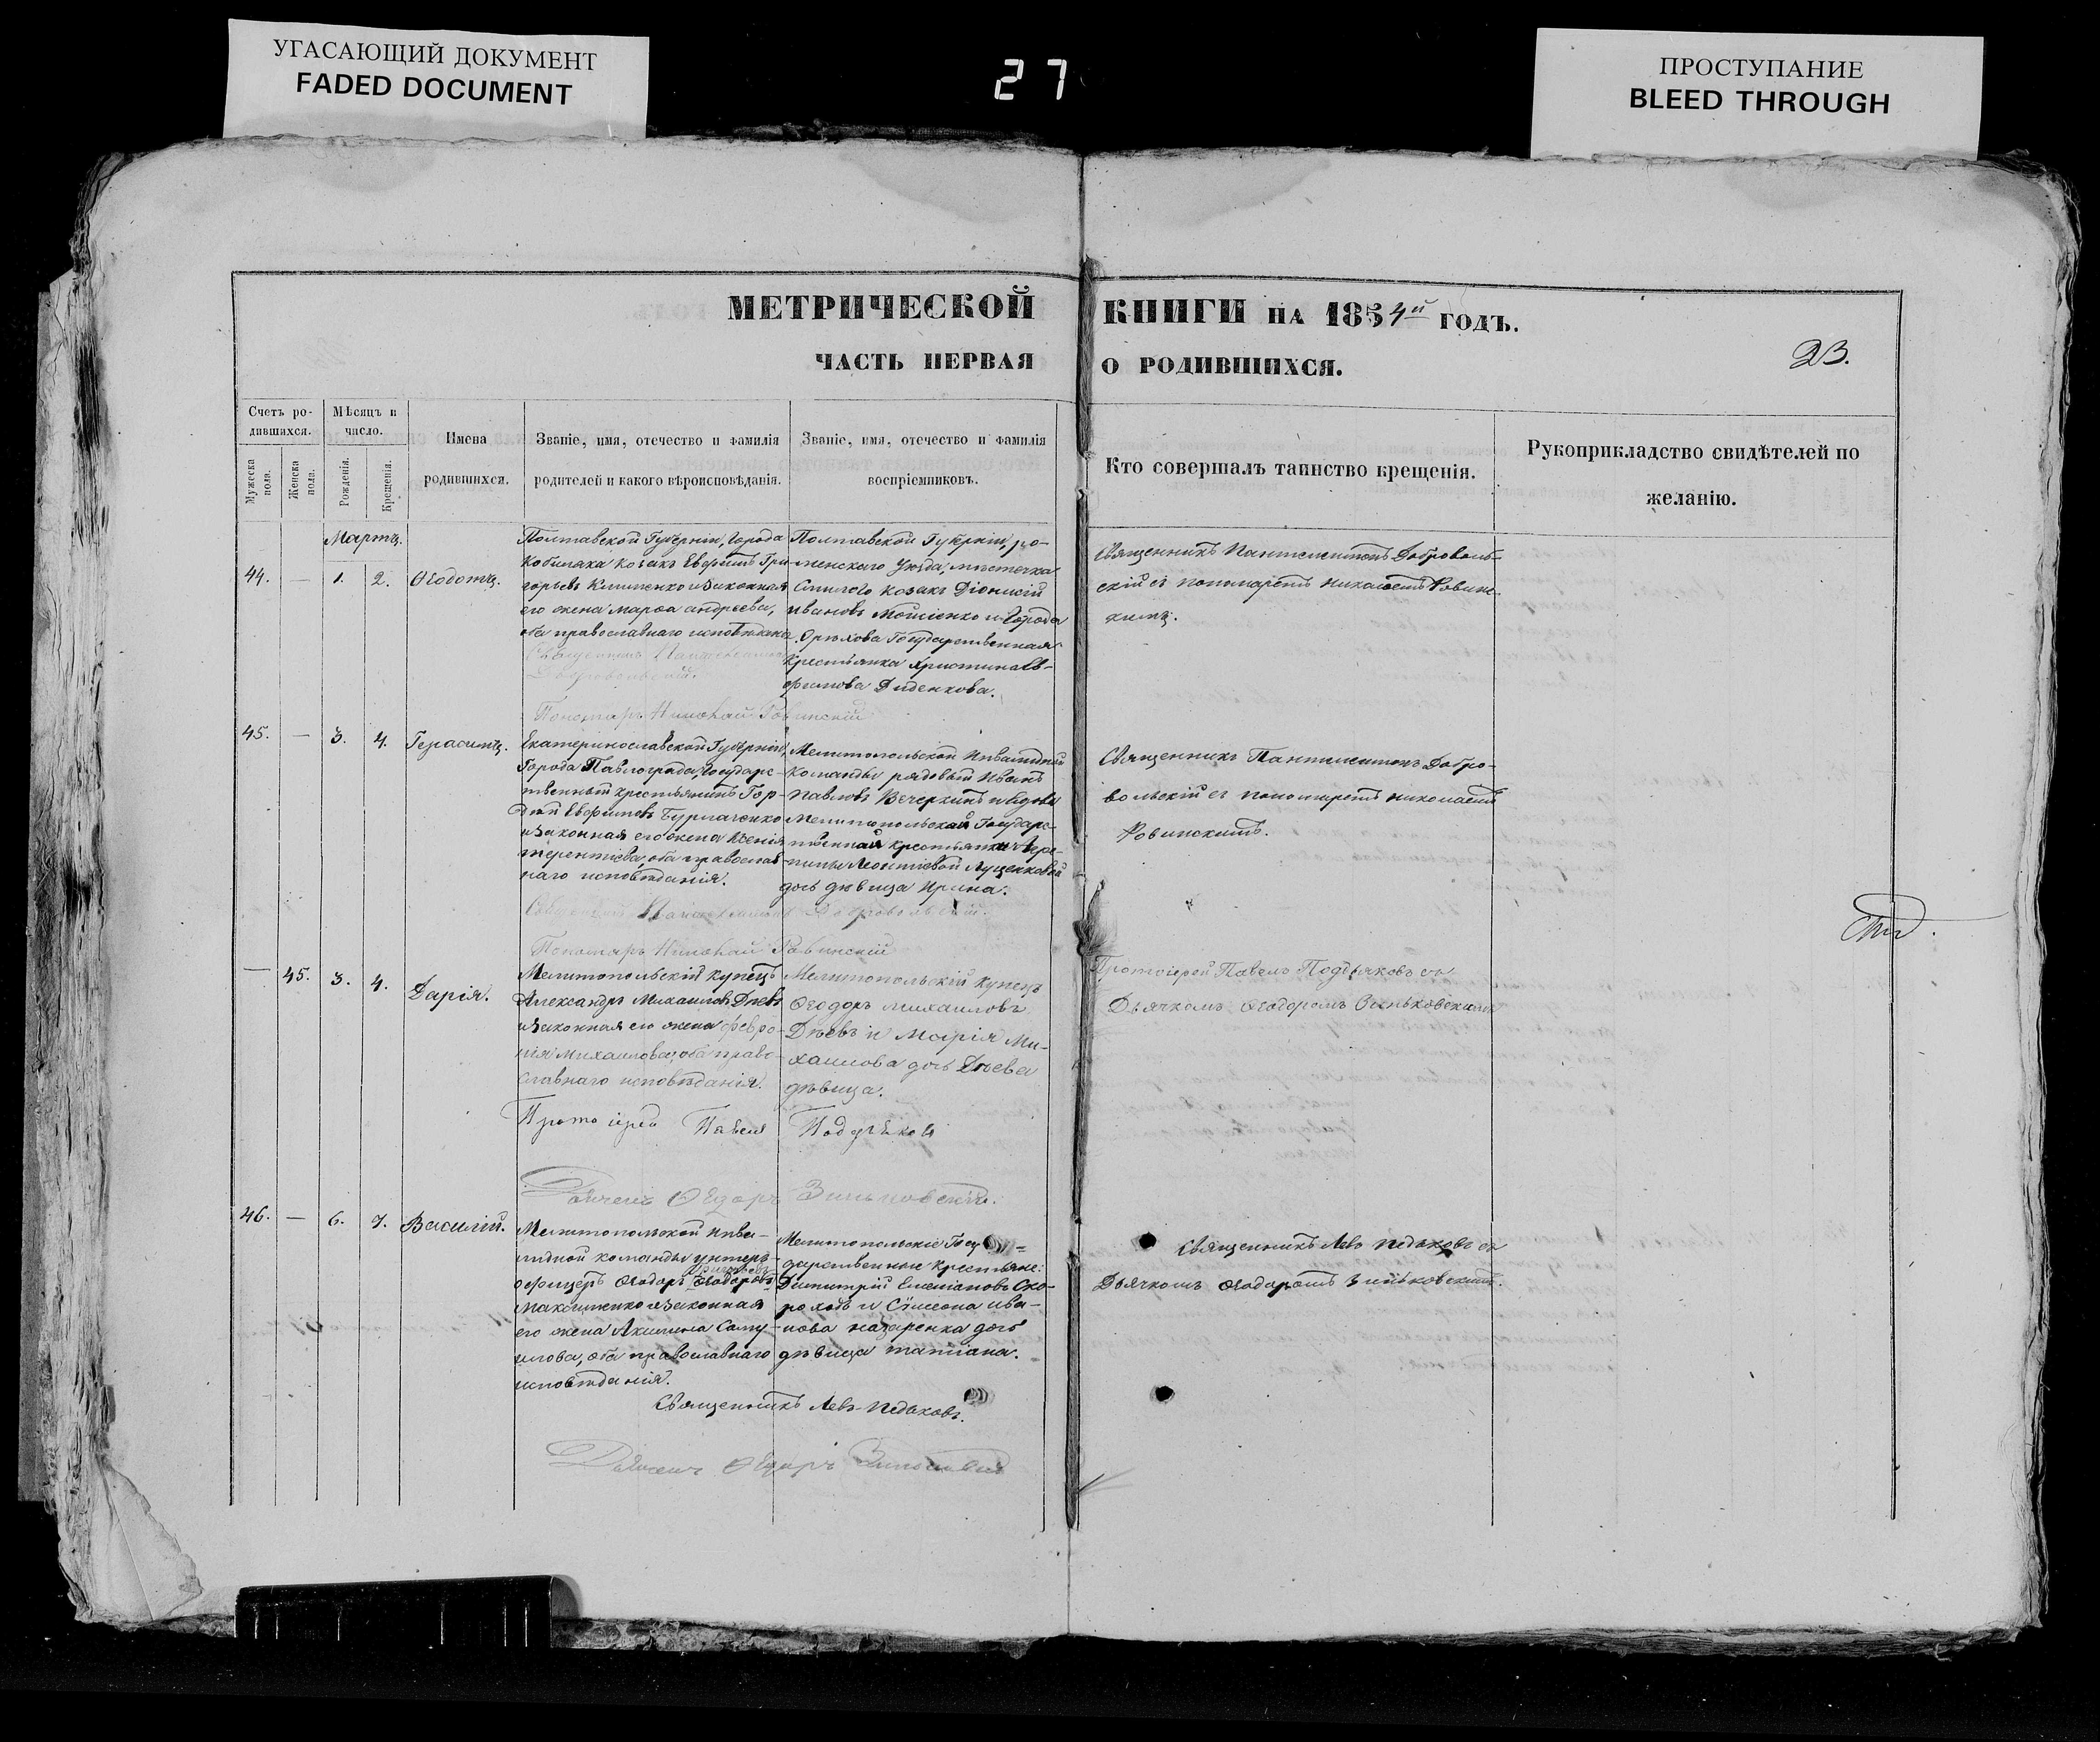 УГАСАЮЩИЙ ДОКУМЕНТ
FADED DOCUMENT
27
ПРОСТУПАНИЕ
BLEED THROUGH
МЕТРИЧЕСКОЙ КНИГИ НА 1854й ГОДЪ.
ЧАСТЬ ПЕРВАЯ О РОДИВШИХСЯ.
23.
Счетъ ро-
дившихся.
Мужеска
пола.
Женска
пола.
Мѣсяцъ и
число.
Рожденія.
Крещенія.
Имена
родившихся.
Званіе, имя, отечество и фамилія
родителей и какого вѣроисповѣданія.
Званіе, имя, отечество и фамилія
воспріемниковъ.
Кто совершалъ таинство крещенія.
Рукоприкладство свидѣтелей по
желанію.
Мартъ.
44. — 1. 2. Ѳеодотъ.
Полтавской Губерніи, города
Кобиляка козакъ Евфимъ Гри-
горьевъ Клименко и законная
его жена Марѳа Андреева,
оба православнаго исповѣданія
Священникъ Пантелеимонъ
Добровольскій.
Пономарь Николай Ровинскій
Полтавской Губерніи, ро-
менскаго уѣзда, мѣстечка
Смилого козакъ Діонисій
Ивановъ Мойсіенко и города
Орѣхова Государственная
крестьянка Христина Ев-
фимова Диденкова.
Священникъ Пантелеимонъ Доброволь-
скій съ пономаремъ Николаемъ Ровинс-
кимъ.
45. — 3. 4. Герасимъ.
Екатеринославской Губерніи,
города Павлограда, государс-
твенный крестьянинъ Гор-
дѣй Евфимовъ Бурлаченко
и законная его жена Ксенія
Терентіева, оба православ-
наго исповѣданія.
Священникъ Пантелеимонъ Добровольскій.
Пономарь Николай Ровинскій
Мелитопольской Инвалидной
команды рядовый Иванъ
Павловъ Вечеркинъ и вдовы
Мелитопольской Государс-
твенной крестьянки Агре-
пины Леонтіевой Луценковой
дочь дѣвица Ирина.
Священникъ Пантелеимонъ Добро-
вольскій съ пономаремъ Николаемъ
Ровинскимъ.
— 45. 3. 4. Дарія.
Мелитопольскій купецъ
Александръ Михаиловъ Дѣевъ
и законная его жена Февро-
нія Михаилова, оба право-
славнаго исповѣданія.
Протоіерей Павелъ Поддъяковъ
Дьячекъ Ѳеодоръ Зиньковскій.
Мелитопольскій купецъ
Ѳеодоръ Михаиловъ
Дѣевъ и Марія Ми-
хаилова дочь Дѣева
дѣвица.
Протоіерей Павелъ Поддъяковъ съ
Дьячкомъ Ѳеодоромъ Зеньковскимъ
46. — 6. 7. Василій.
Мелитопольской Инва-
лидной команды унтеръ-
офицеръ Ѳеодоръ Ѳеодоровъ
Максименко и законная
его жена Акилина Саму-
илова, оба православнаго
исповѣданія.
Священникъ Левъ Педьковъ.
Дьячекъ Ѳеодоръ Зиньковскій
Мелитопольскіе Госу-
дарственные крестьяне:
Димитрій Емеліановъ Ско-
роходъ и Сѵмеона Ива-
нова Назаренка дочь
дѣвица Татіана.
Священникъ Левъ Педьковъ съ
Дьячкомъ Ѳеодоромъ Зиньковскимъ.